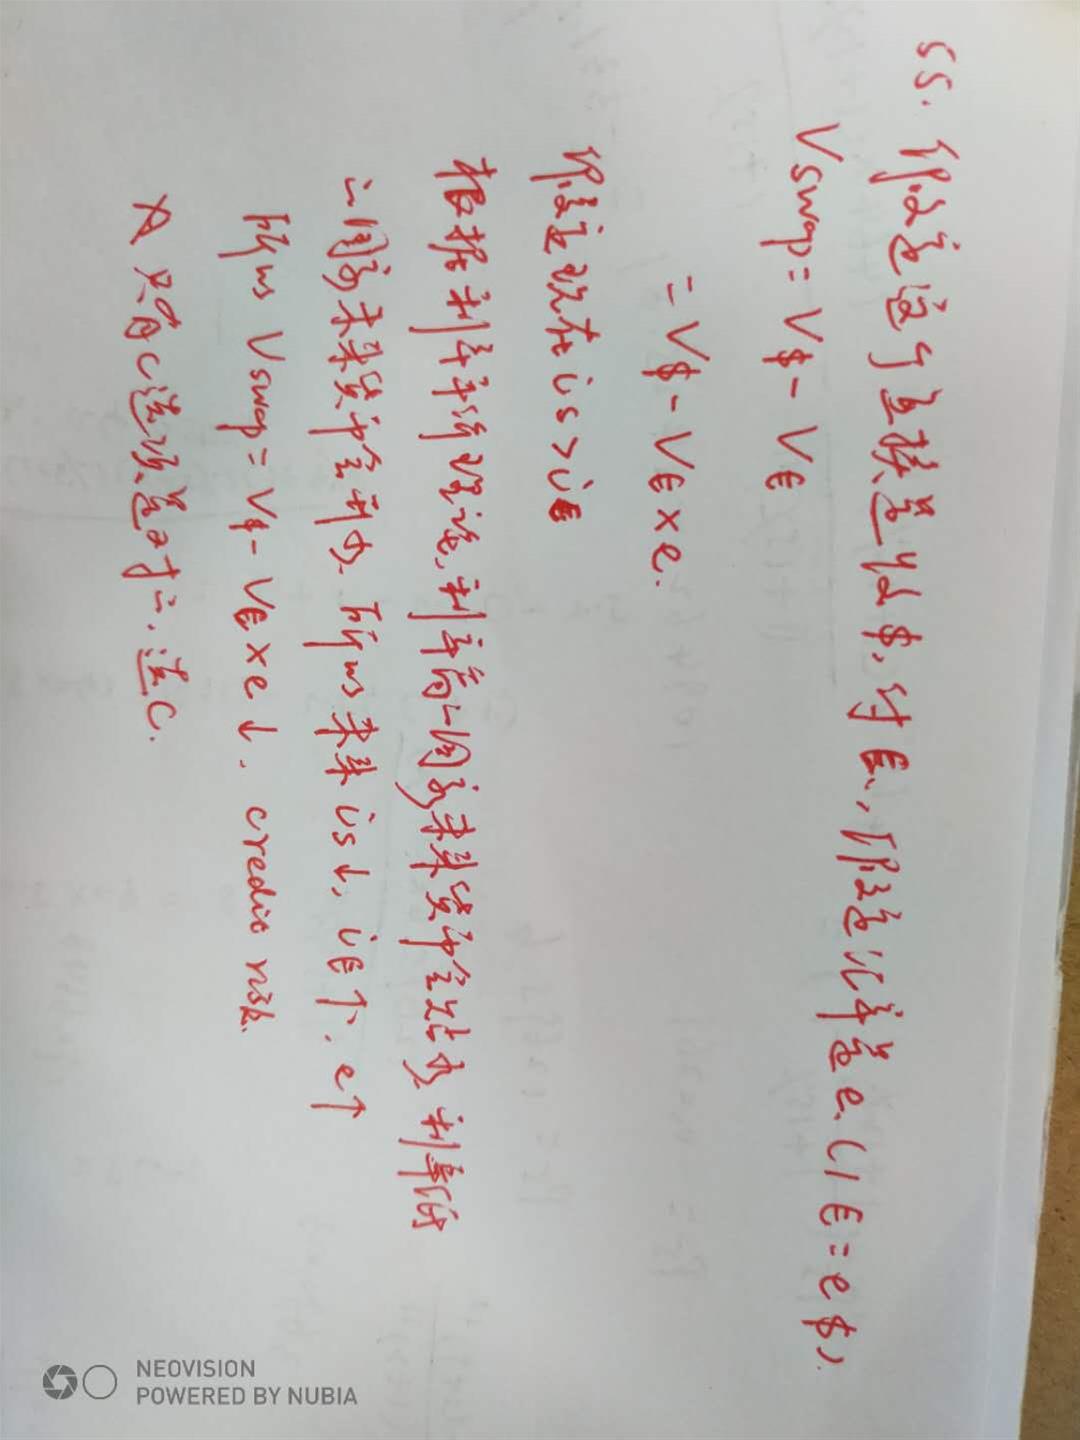 55. 假定这个互换是收$, 付€, 假定汇率是e. (1€=e$).
Vswap=V$-V€
=V$-V€×e.
假定现在i$>i€
根据利率平价理论, 利率高的国家未来货币会贬值, 利率低
的国家未来货币会升值. 所以未来i$↓, i€↑, e↑
所以 Vswap=V$-V€×e↓. credit risk.
只有C选项是对的. 选C.
NEOVISION
POWERED BY NUBIA